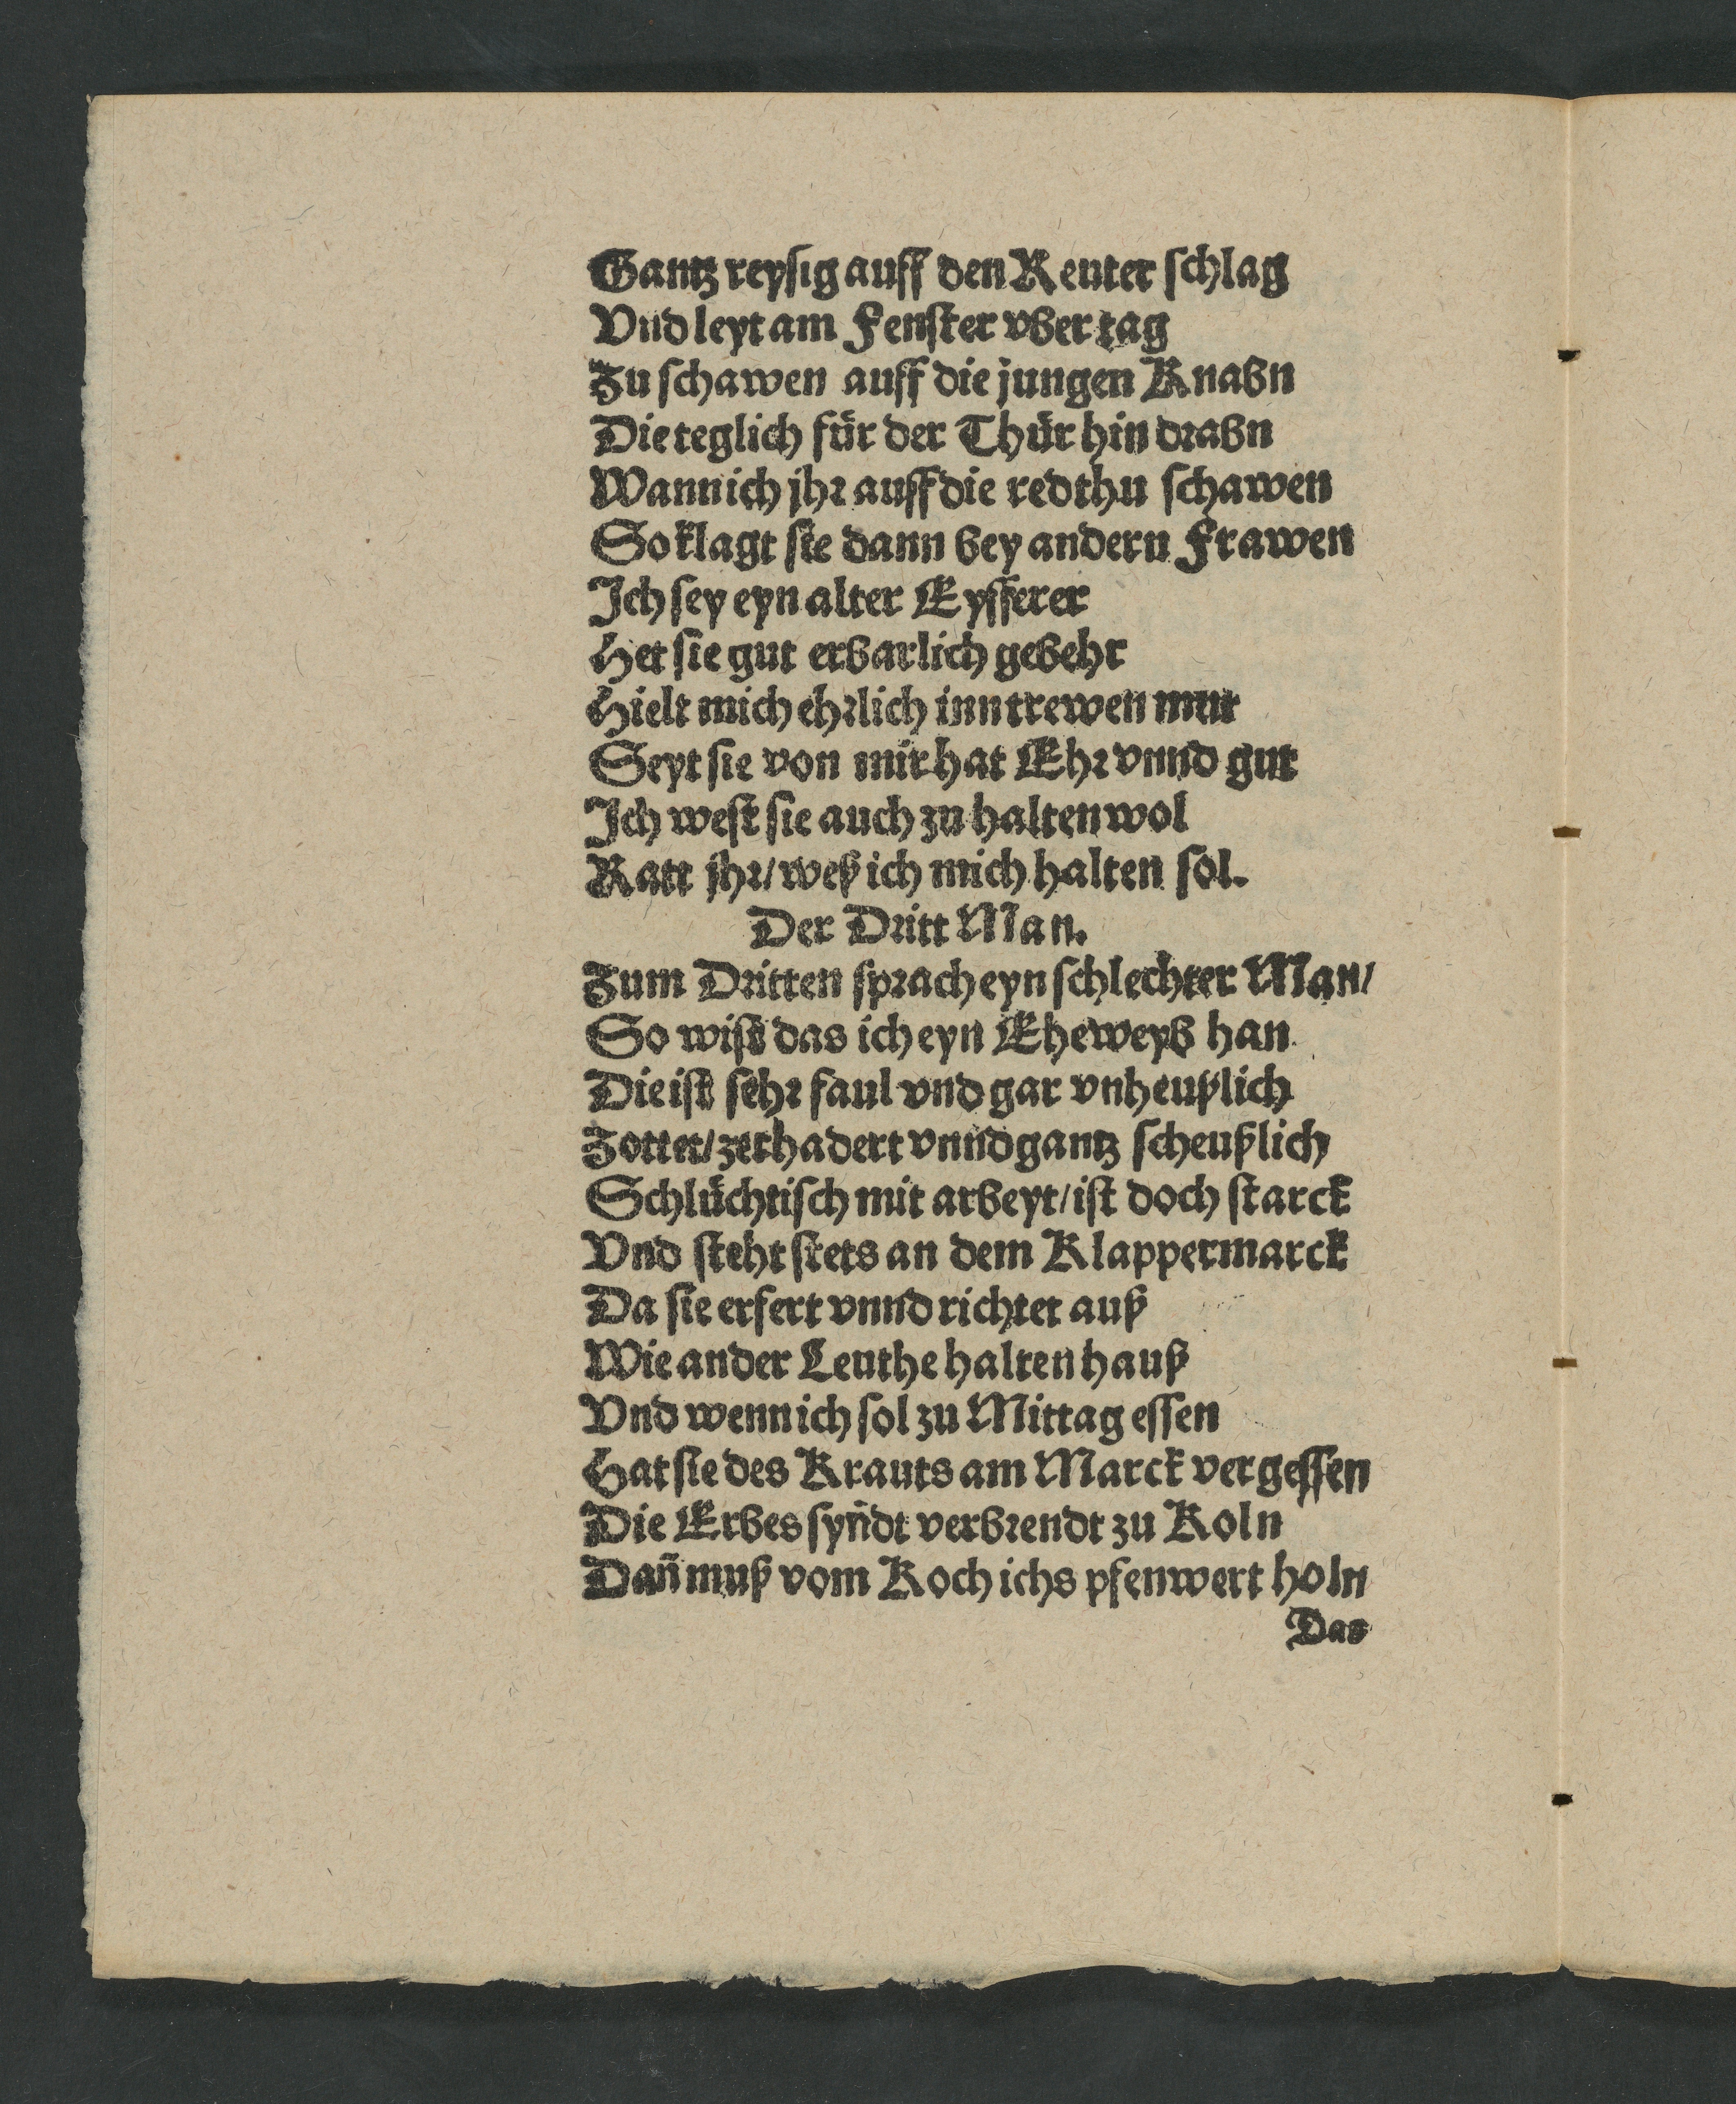 Gantz reysig auff den Reuter schlag
Vnd leyt am Fenster vber tag
Zu schawen auff die jungen Knabn
Die teglich für der Thür hin drabn
Wann ich jhr auff die red thu schawen
So klagt sie dann bey andern Frawen
Ich sey eyn alter Eyfferer
Het sie gut erbarlich gebehr
Hielt mich ehrlich inn trewen mut
Seyt sie von mir hat Ehr vnnd gut
Ich west sie auch zu halten wol
Ratt jhr/ weß ich mich halten sol.
Der Dritt Man.
Zum Dritten sprach eyn schlechter Man/
So wist das ich eyn Eheweyb han
Die ist sehr faul vnd gar vnheußlich
Zottet/ zerhadert vnnd gantz scheußlich
Schlüchtisch mit arbeyt/ ist doch starck
Vnd steht stets an dem Klappermarck
Da sie erfert vnnd richtet auß
Wie ander Leuthe halten hauß
Vnd wenn ich sol zu Mittag essen
Hat sie des Krauts am Marck vergessen
Die Erbes syndt verbrendt zu Koln
Dañ muß vom Koch ichs pfenwert holn
Das